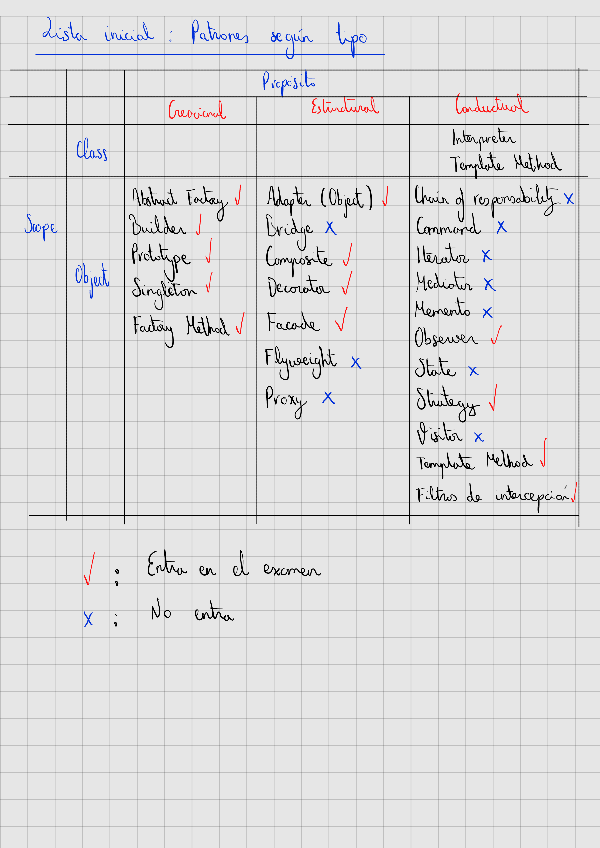 Lista inicial : Patrones según tipo
Propósito
Creacional Estructural Conductual
Class
Interpreter
Template Method
Scope
Object
Abstract Factory ✓
Builder ✓
Prototype ✓
Singleton ✓
Factory Method ✓
Adapter (Object) ✓
Bridge x
Composite ✓
Decorator ✓
Facade ✓
Flyweight x
Proxy x
Chain of responsability x
Command x
Iterator x
Mediator x
Memento x
Observer ✓
State x
Strategy ✓
Visitor x
Template Method ✓
Filtros de intercepción ✓
✓ : Entra en el examen
x : No entra